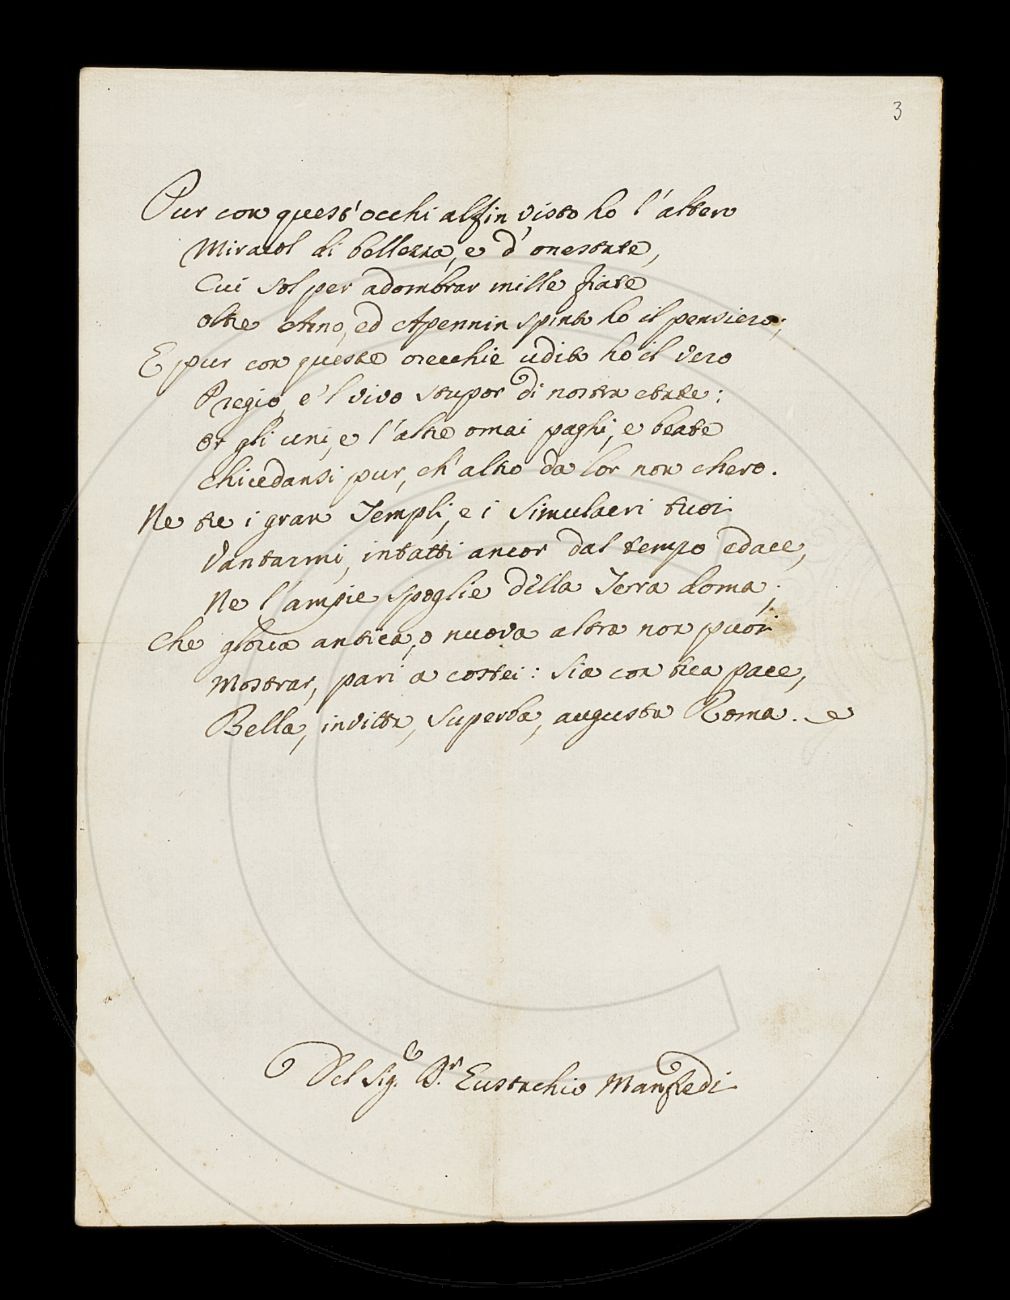 3
Pur con quest'occhi alfin visto ho l'altero
Miracol di bellezza, e d'onestate,
Cui sol per adombrar mille fiate
oltre Arno, ed Apennin spinto ho il pensiero;
E pur con queste orecchie udito ho il vero
Pregio, e'l vivo stupor di nostra etate:
or gli uni, e l'altre omai paghi, e beate
Chiedansi pur, ch'altro da lor non chero.
Ne tu i gran Templi, e i Simulacri tuoi
Vantarmi, intatti ancor dal tempo edace,
Ne l'ampie spoglie della Terra doma;
Che gloria antica, o nuova altra non puoi
Mostrar, pari a costei: sia con tua pace,
Bella, invitta, superba, augusta Roma.
Del Sig.e D.r Eustachio Manfredi